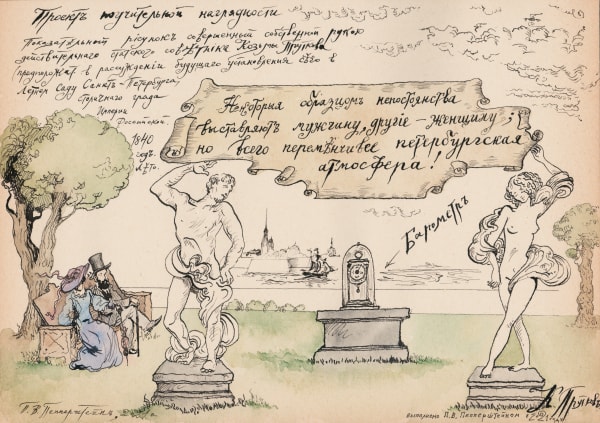 Проектъ поучительной наглядности
Показательный рисунокъ совершенный собственной рукою
действительнаго статского совѣтника Козьмы Пруткова
(предположен в рассуждении будущаго установления сего в
Летнем Саду Санкт-Петербурга,
столичного града
Империи
Российской.
1840
годъ.
Лѣто.
Некоторыя образцомъ непостоянства
выставляютъ мужчину, другiе - женщину;
но всего переменчивее петербургская
атмосфера!
Барометръ
П. В. Пепперштейн
выполнено П. В. Пепперштейном
К. Прутковъ